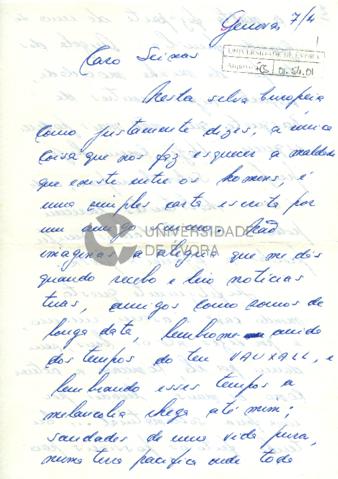 Genova, 7/4
UNIVERSIDADE DE ÉVORA
Caro Seixas
Nesta selva Europeia
como justamente dizes, a única
coisa que nos faz esquecer a maldade
que existe entre os homens, é
uma simples carta escrita por
um amigo
UNIVERSIDADE
DE ÉVORA
imaginas a alegria que me dás
quando recebo e leio notícias
tuas, amigos como somos de
longa data, lembrome amiúde
dos tempos do teu VAUXALL, e
lembrando esses tempos a
melancolia chega até mim;
saudades de uma vida pura,
numa terra pacífica onde toda